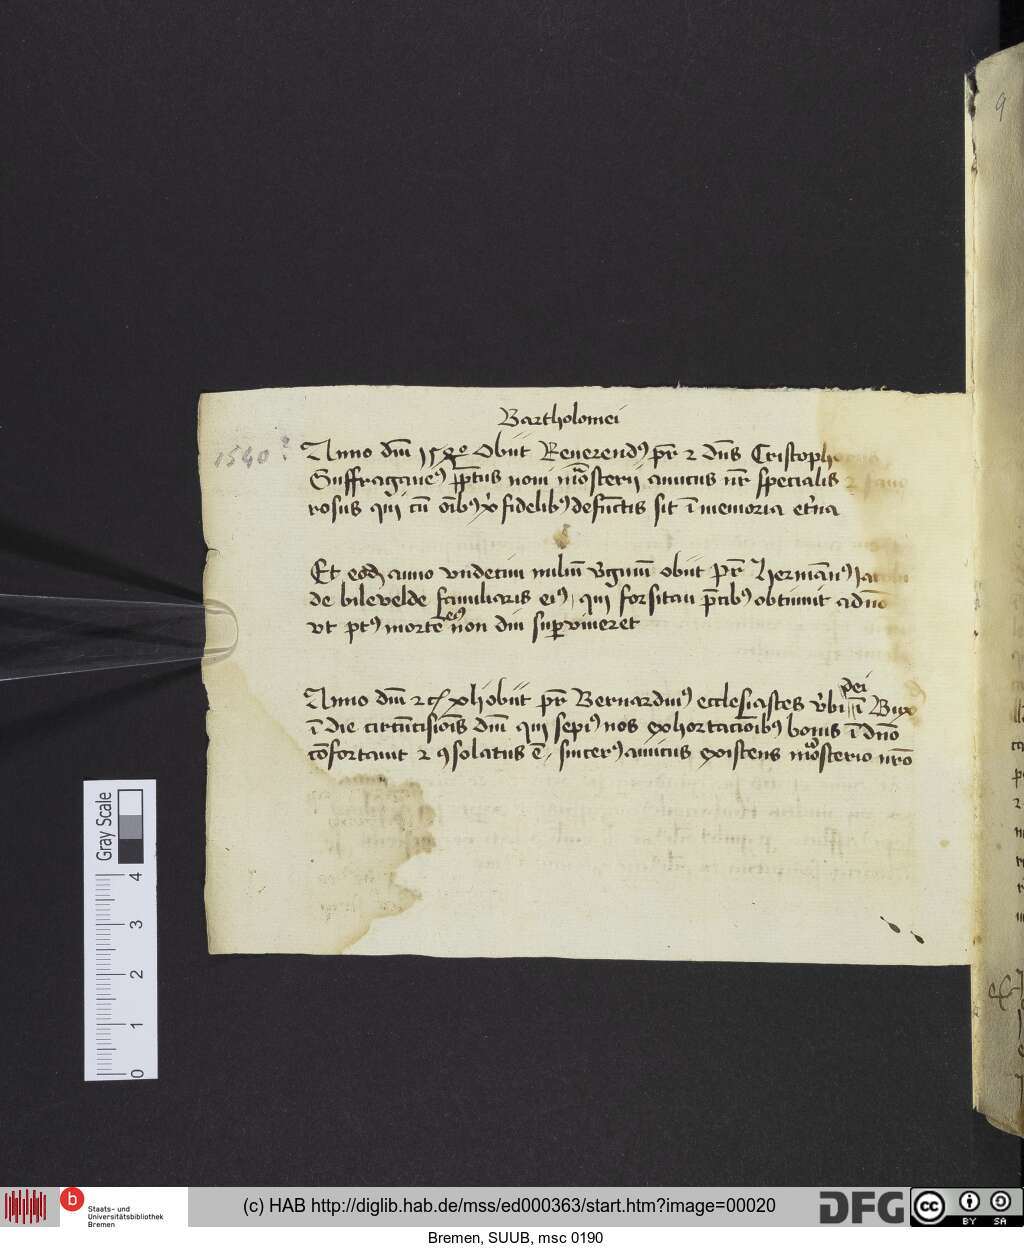 Bartholomei
1540?
Anno dm̄ 1540 Obiit Reuerendꝰ pr̄ ⁊ dn̄s Cristopho
Suffraganeꝰ p̄ptus noui mo̅sterii amicus nr̄ specialis ⁊ faue
rosus qui cū oībꝰ xp̄i fidelibꝰ defūctis sit ī memoria et̓na
Et eodē anno vndecim miliū v̓ginū obiit pr̄ hermānꝰ Jacobi
de bilevelde familiaris eiꝰ, qui forsitan p̄cibꝰ obtinuit a dn̄o
vt pꝰ mortē eiꝰ non diu superviueret
Anno dm̄ ⁊c xli obiit pr̄ Bernardinꝰ ecclesiastes v̓bi dei ī Bux
ī die circūcisiōis dn̄i qui sepiꝰ nos exhortaciōibꝰ bonis ī dn̄o
cōfortauit ⁊ ꝯsolatus ē, sincerꝰ amicus existens mo̅sterio nr̄o
9
Gray Scale
4
3
2
1
0
b
Staats- und
Universitätsbibliothek
Bremen
(c) HAB http://diglib.hab.de/mss/ed000363/start.htm?image=00020
DFG
cc
BY SA
Bremen, SUUB, msc 0190